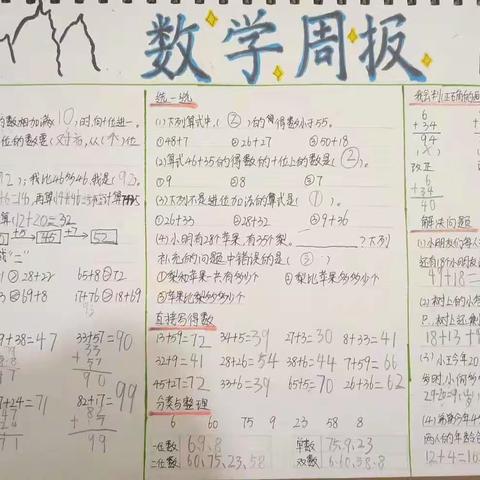 数学周报
的数相加满10时,向十位进一。
位的数要(对齐),从(个)位
92);我比46多46,我是(92。
算12+20=32
45
52
28+22
65+8
72
69+8
17+76
18+69
9+38=47
33+57=90
33
57
90
7+24=71
82+17=99
99
选一选
(1)下列算式中,(②)的算得数小于55。
①48+7
②26+27
③50+18
(2)算式46+35的得数的十位上的数是(②)。
①9
②8
③7
(3)下列不是进位加法的算式是(①)。
①26+33
②28+32
③9+36
(4)小明有28个苹果,有35个梨。________?下列
补充的问题中错误的是(③)
①梨和苹果一共有多少个
②梨比苹果多多少个
③苹果比梨多多少个
直接写得数
13+59=72
34+5=39
27+3=30
8+33=41
32+9=41
28+26=54
38+6=44
7+59=66
45+27=72
33+6=39
65+5=70
26+36=62
分类与整理
6 60 75 9 23 58 8
一位数
6、9、8
单数
75、9、23
二位数
60、75、23、58
双数
6、60、58、8
6
+34
94
(×)
改正
6
+34
40
解决问题
49+18=
18+13
(3)小王今年20
29-20=9(岁)
12+4=16